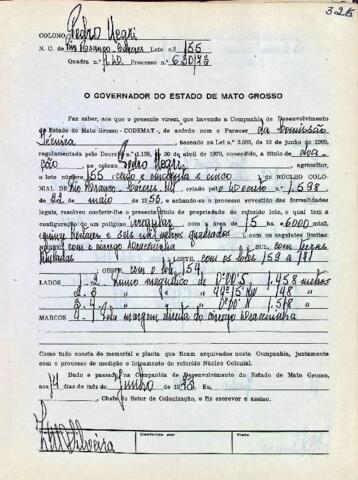 325
COLONO Pedro Negri
N. C. de Rio Branco-Cáceres Lote n.º 155
Quadra n.º Processo n.º 630/73
O GOVERNADOR DO ESTADO DE MATO GROSSO
Faz saber, aos que o presente virem, que havendo a Companhia de Desenvolvimento
do Estado de Mato Grosso - CODEMAT -, de acôrdo com o Parecer da Comissão
Técnica baseada na Lei n.º 2.933, de 10 de junho de 1969,
regulamentada pelo Decreto n.º 1.138, de 20 de abril de 1970, concedido, a título de doa
ção ao colono Pedro Negri agricultor,
o lote número 155 cento e cincoenta e cinco do NÚCLEO COLO-
NIAL DE Rio Branco-Cáceres-Mt criado por Decreto n.º 1.598
de 22 de maio de 1953, e achando-se o processo revestido das formalidades
legais, resolveu conferir-lhe o presente título de propriedade do referido lote, o qual tem a
configuração de um polígno irregular com 15 ha 6000 metros
quinze hectares e seis mil metros quadrados com os seguintes limites:
com o córrego SUL, com terras
LESTE, com os lotes 159 a 181
OESTE, com o lote 154
LADOS 1-2 Rumo magnético de 0º00'S 1.458 metros
2-3 " " " 44º15'NW 148 "
3-4 " " " 0º00'N 1.518 "
MARCOS 4-1 Pela margem direita do córrego
Como tudo consta do memorial e planta que ficam arquivados nesta Companhia, juntamente
com o processo de medição e loteamento do referido Núcleo Colonial.
Dado e passado na Companhia de Desenvolvimento do Estado de Mato Grosso,
aos 14 dias do mês de Junho de 1973 Eu,
, Chefe do Setor de Colonização, o fiz escrever e assino.
Silveira
Conferido por
Visto